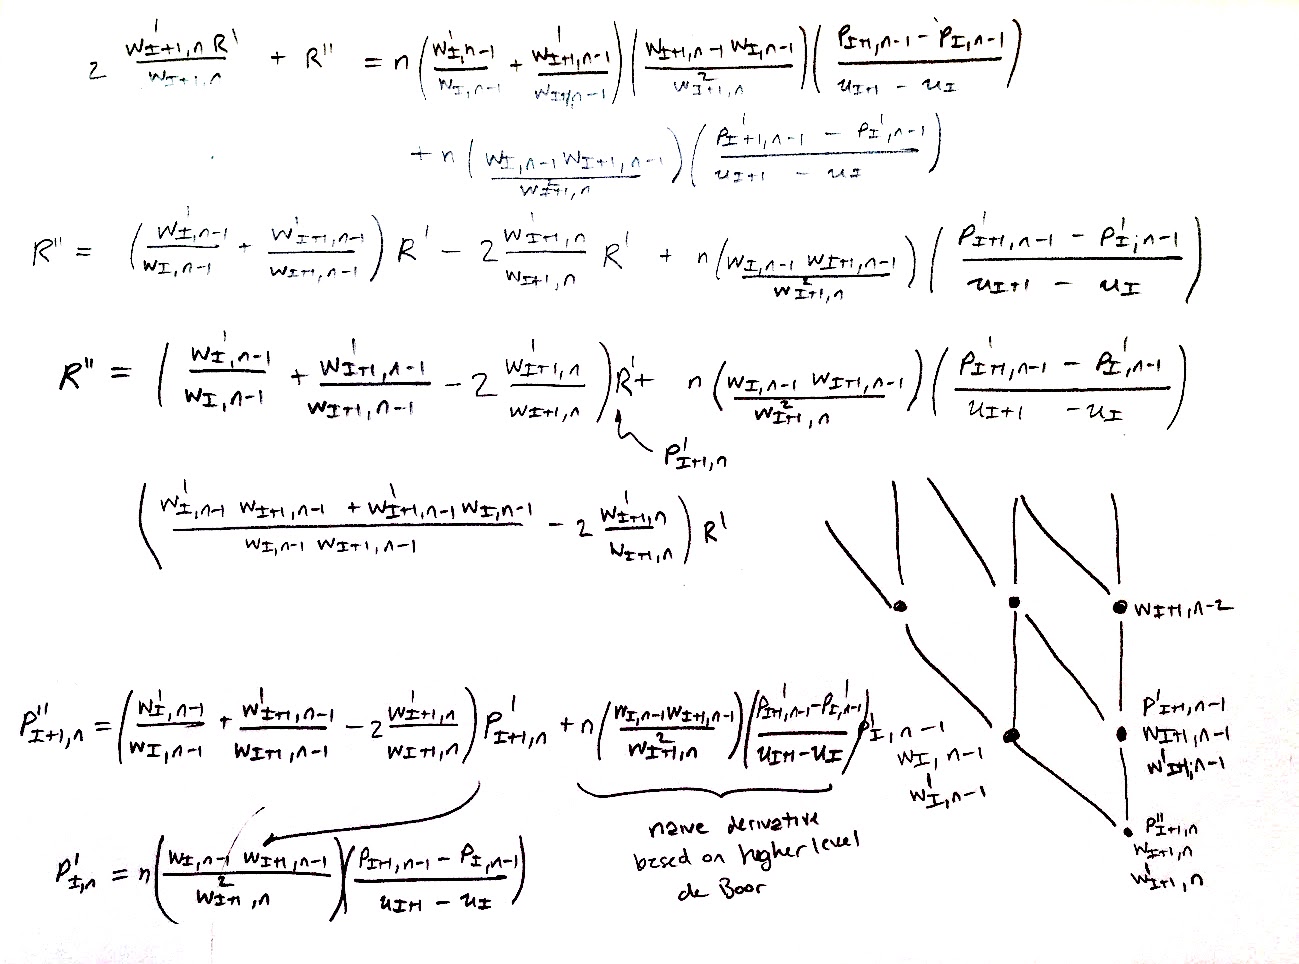 2 w'_{I+1,n} R' / w_{I+1,n} + R'' = n ( w'_{I,n-1} / w_{I,n-1} + w'_{I+1,n-1} / w_{I+1,n-1} ) ( w_{I+1,n-1} w_{I,n-1} / w²_{I+1,n} ) ( P_{I+1,n-1} - P_{I,n-1} / u_{I+1} - u_I )
+ n ( w_{I,n-1} w_{I+1,n-1} / w²_{I+1,n} ) ( P'_{I+1,n-1} - P'_{I,n-1} / u_{I+1} - u_I )
R'' = ( w'_{I,n-1} / w_{I,n-1} + w'_{I+1,n-1} / w_{I+1,n-1} ) R' - 2 w'_{I+1,n} / w_{I+1,n} R' + n ( w_{I,n-1} w_{I+1,n-1} / w²_{I+1,n} ) ( P'_{I+1,n-1} - P'_{I,n-1} / u_{I+1} - u_I )
R'' = ( w'_{I,n-1} / w_{I,n-1} + w'_{I+1,n-1} / w_{I+1,n-1} - 2 w'_{I+1,n} / w_{I+1,n} ) R' + n ( w_{I,n-1} w_{I+1,n-1} / w²_{I+1,n} ) ( P'_{I+1,n-1} - P'_{I,n-1} / u_{I+1} - u_I )
P'_{I+1,n}
( w'_{I,n-1} w_{I+1,n-1} + w'_{I+1,n-1} w_{I,n-1} / w_{I,n-1} w_{I+1,n-1} - 2 w'_{I+1,n} / w_{I+1,n} ) R'
w_{I+1,n-2}
P''_{I+1,n} = ( w'_{I,n-1} / w_{I,n-1} + w'_{I+1,n-1} / w_{I+1,n-1} - 2 w'_{I+1,n} / w_{I+1,n} ) P'_{I+1,n} + n ( w_{I,n-1} w_{I+1,n-1} / w²_{I+1,n} ) ( P'_{I+1,n-1} - P'_{I,n-1} / u_{I+1} - u_I )
P'_{I,n-1}
w_{I,n-1}
w'_{I,n-1}
P'_{I+1,n-1}
w_{I+1,n-1}
w'_{I+1,n-1}
naive derivative
based on higher level
de Boor
P''_{I+1,n}
w_{I+1,n}
w'_{I+1,n}
P'_{I,n} = n ( w_{I,n-1} w_{I+1,n-1} / w²_{I+1,n} ) ( P_{I+1,n-1} - P_{I,n-1} / u_{I+1} - u_I )